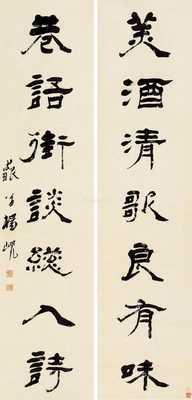 美酒清歌良有味
巷語街談總入詩
藐翁楊峴